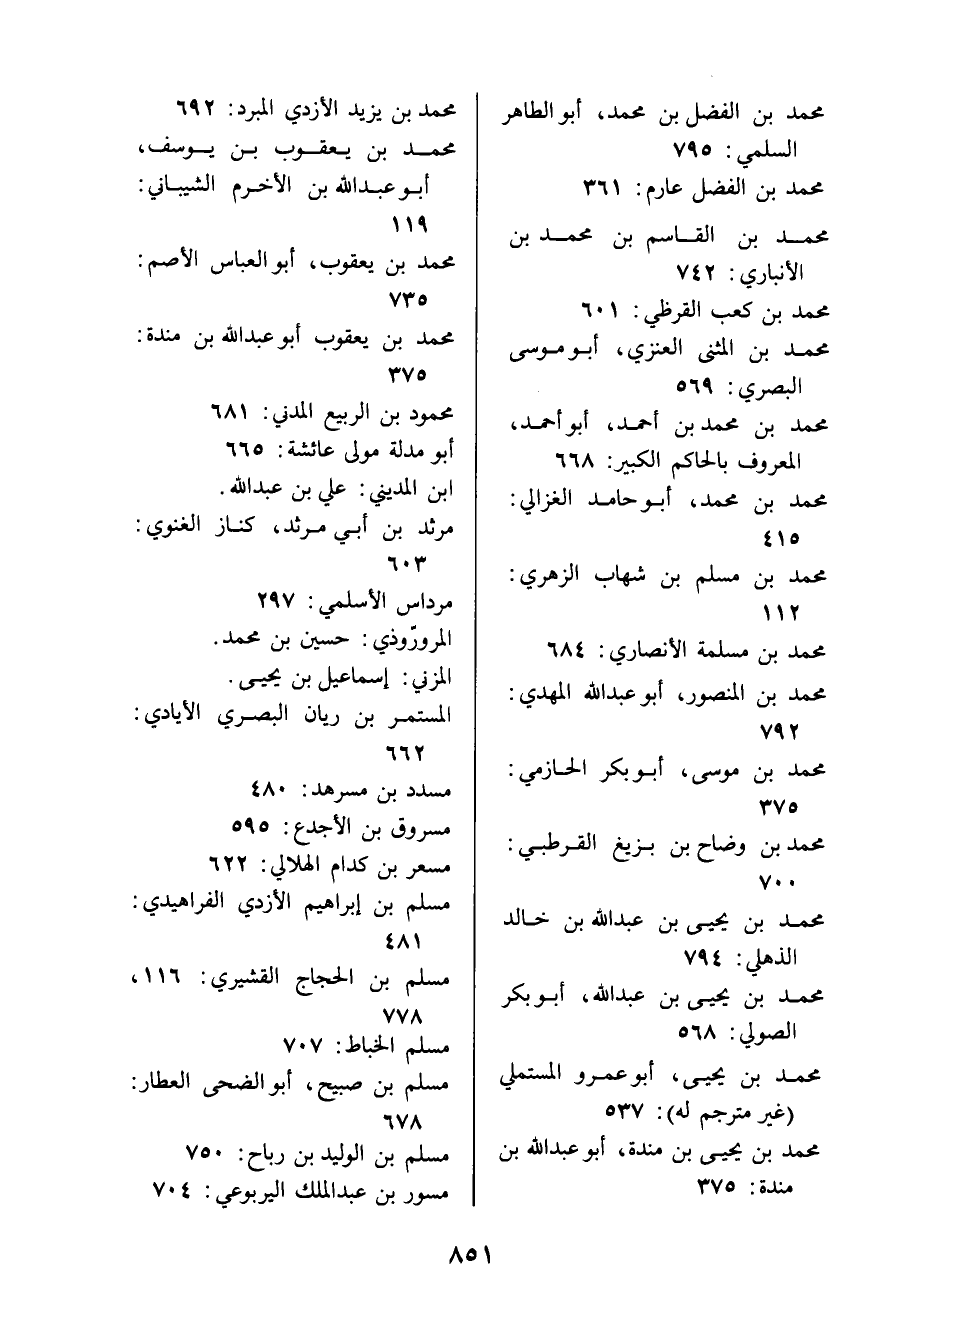 محمد بن الفضل بن محمد، أبو الطاهر
السلمي: ٧٩٥
محمد بن الفضل عارم: ٣٦١
محمد بن القاسم بن محمد بن
الأنباري: ٧٤٢
محمد بن كعب القرظي: ٦٠١
محمد بن المثنى العنزي، أبو موسى
البصري: ٥٦٩
محمد بن محمد بن أحمد، أبو أحمد،
المعروف بالحاكم الكبير: ٦٦٨
محمد بن محمد، أبو حامد الغزالي:
٤١٥
محمد بن مسلم بن شهاب الزهري:
١١٢
محمد بن مسلمة الأنصاري: ٦٨٤
محمد بن المنصور، أبو عبدالله المهدي:
٧٩٢
محمد بن موسى، أبو بكر الحازمي:
٣٧٥
محمد بن وضاح بن بزيغ القرطبي:
٧٠٠
محمد بن يحيى بن عبدالله بن خالد
الذهلي: ٧٩٤
محمد بن يحيى بن عبدالله، أبو بكر
الصولي: ٥٦٨
محمد بن يحيى، أبو عمرو المستملي
(غير مترجم له): ٥٣٧
محمد بن يحيى بن مندة، أبو عبدالله بن
مندة: ٣٧٥
محمد بن يزيد الأزدي المبرد: ٦٩٢
محمد بن يعقوب بن يوسف،
أبو عبدالله بن الأخرم الشيباني:
١١٩
محمد بن يعقوب، أبو العباس الأصم:
٧٣٥
محمد بن يعقوب أبو عبدالله بن مندة:
٣٧٥
محمود بن الربيع المدني: ٦٨١
أبو مدلة مولى عائشة: ٦٦٥
ابن المديني: علي بن عبدالله.
مرثد بن أبي مرثد، كناز الغنوي:
٦٠٣
مرداس الأسلمي: ٢٩٧
المرورّوذي: حسين بن محمد.
المزني: إسماعيل بن يحيى.
المستمر بن ريان البصري الأيادي:
٦٦٢
مسدد بن مسرهد: ٤٨٠
مسروق بن الأجدع: ٥٩٥
مسعر بن كدام الهلالي: ٦٢٢
مسلم بن إبراهيم الأزدي الفراهيدي:
٤٨١
مسلم بن الحجاج القشيري: ١١٦،
٧٧٨
مسلم الخباط: ٧٠٧
مسلم بن صبيح، أبو الضحى العطار:
٦٧٨
مسلم بن الوليد بن رباح: ٧٥٠
مسور بن عبدالملك اليربوعي: ٧٠٤
٨٥١